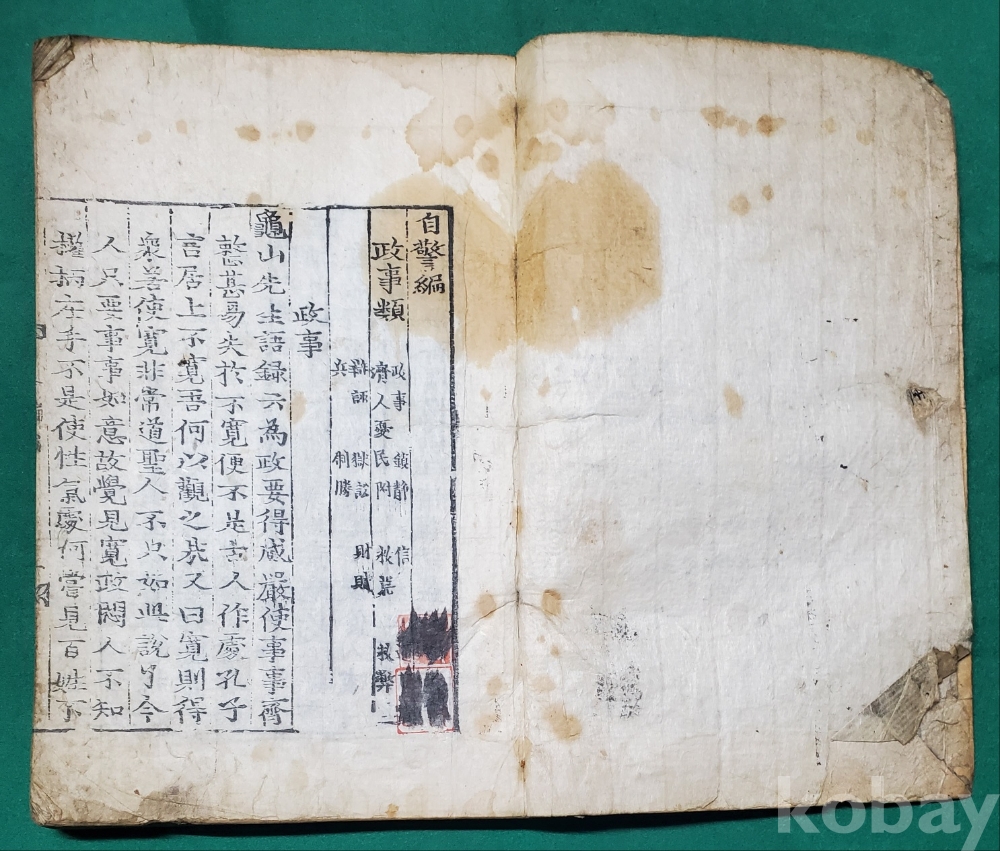 自警編
政事類
政事 鎮靜 信
濟人憂民附 救荒 救弊
辭訟 獄訟 財賦
兵 制勝
政事
龜山先生語錄云為政要得威嚴使事事齊
整甚易失於不寬便不是古人作處孔子
言居上不寬吾何以觀之哉又曰寬則得
衆若使寬非常道聖人不只如此說了今
人只要事事如意故覺見寬政悶人不知
權柄在手不是使性氣處何嘗見百姓不
kobay